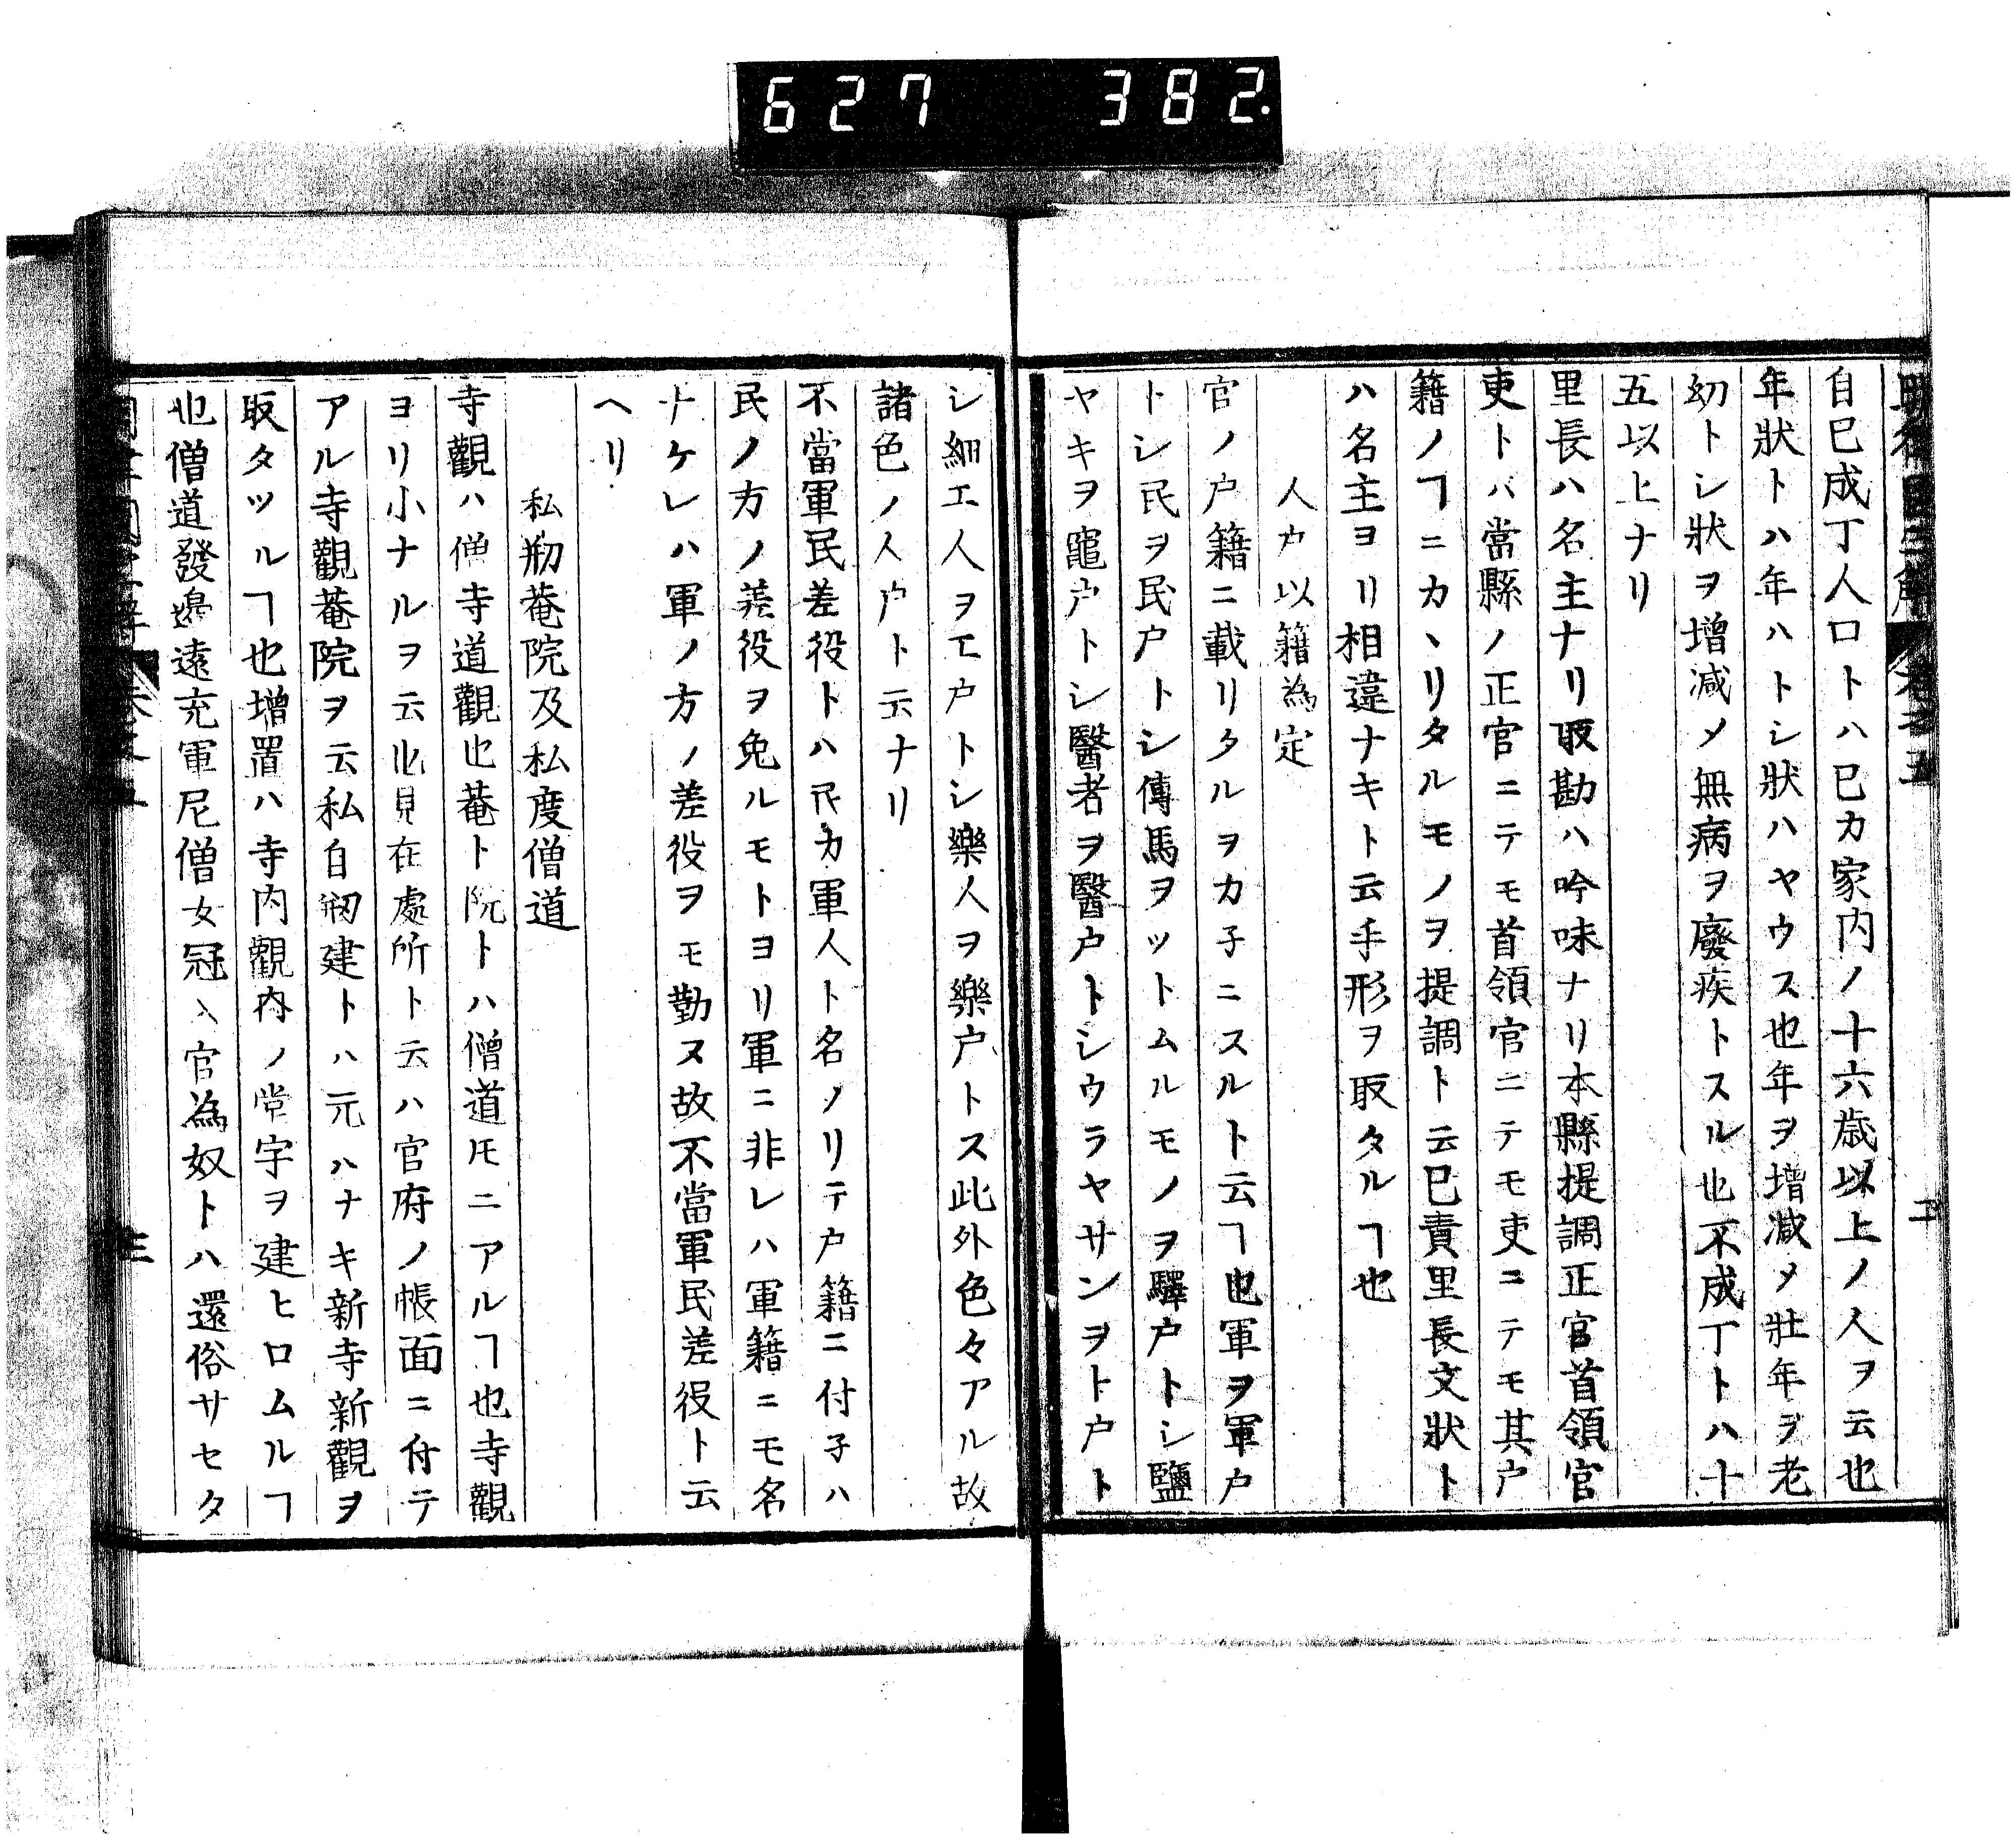 627 382.
自已成丁人口トハ已カ家内ノ十六歳以上ノ人ヲ云也
年狀トハ年ハトシ狀ハヤウス也年ヲ增減メ壯年ヲ老
幼トシ狀ヲ增减メ無病ヲ廢疾トスル也不成丁トハ十
五以上ナリ
里長ハ名主ナリ取勘ハ吟味ナリ本縣提調正官首領官
吏トハ當縣ノ正官ニテモ首領官ニテモ吏ニテモ其户
籍ノヿニカヽリタルモノヲ提調ト云已責里長文狀ト
ハ名主ヨリ相違ナキト云手形ヲ取タルヿ也
人户以籍為定
官ノ户籍ニ載リタルヲカ子ニスルト云ヿ也軍ヲ軍户
トシ民ヲ民户トシ傳馬ヲツトムルモノヲ驛户トシ鹽
ヤキヲ竈户トシ醫者ヲ醫户トシウラヤサンヲト户ト
シ細工人ヲ匠户トシ樂人ヲ樂户トス此外色々アル故
諸色ノ人户ト云ナリ
不當軍民差役トハ民カ軍人ト名ノリテ户籍ニ付子ハ
民ノ方ノ差役ヲ免ルモトヨリ軍ニ非レハ軍籍ニモ名
ナケレハ軍ノ方ノ差役ヲモ勤ス故不當軍民差役ト云
ヘリ
私剏菴院及私度僧道
寺觀ハ僧寺道觀也菴ト院トハ僧道𪜈ニアルヿ也寺觀
ヨリ小ナルヲ云也見在處所ト云ハ官府ノ帳面ニ付テ
アル寺觀菴院ヲ云私自剏建トハ元ハナキ新寺新觀ヲ
取タツルヿ也增置ハ寺内觀内ノ堂宇ヲ建ヒロムルヿ
也僧道發邊遠充軍尼僧女冠入官為奴トハ還俗サセタ
三